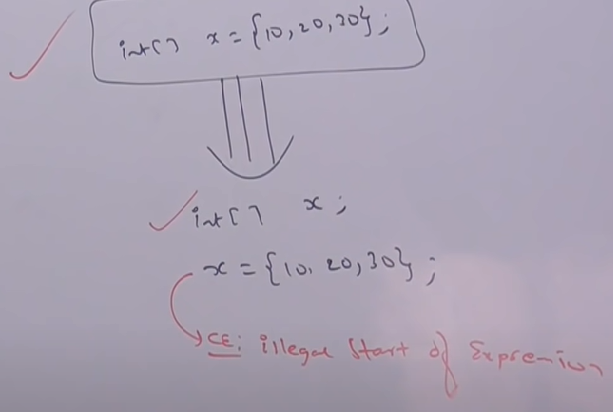 int[] x = {10, 20, 30};
int[] x;
x = {10, 20, 30};
CE: illegal Start of Expression